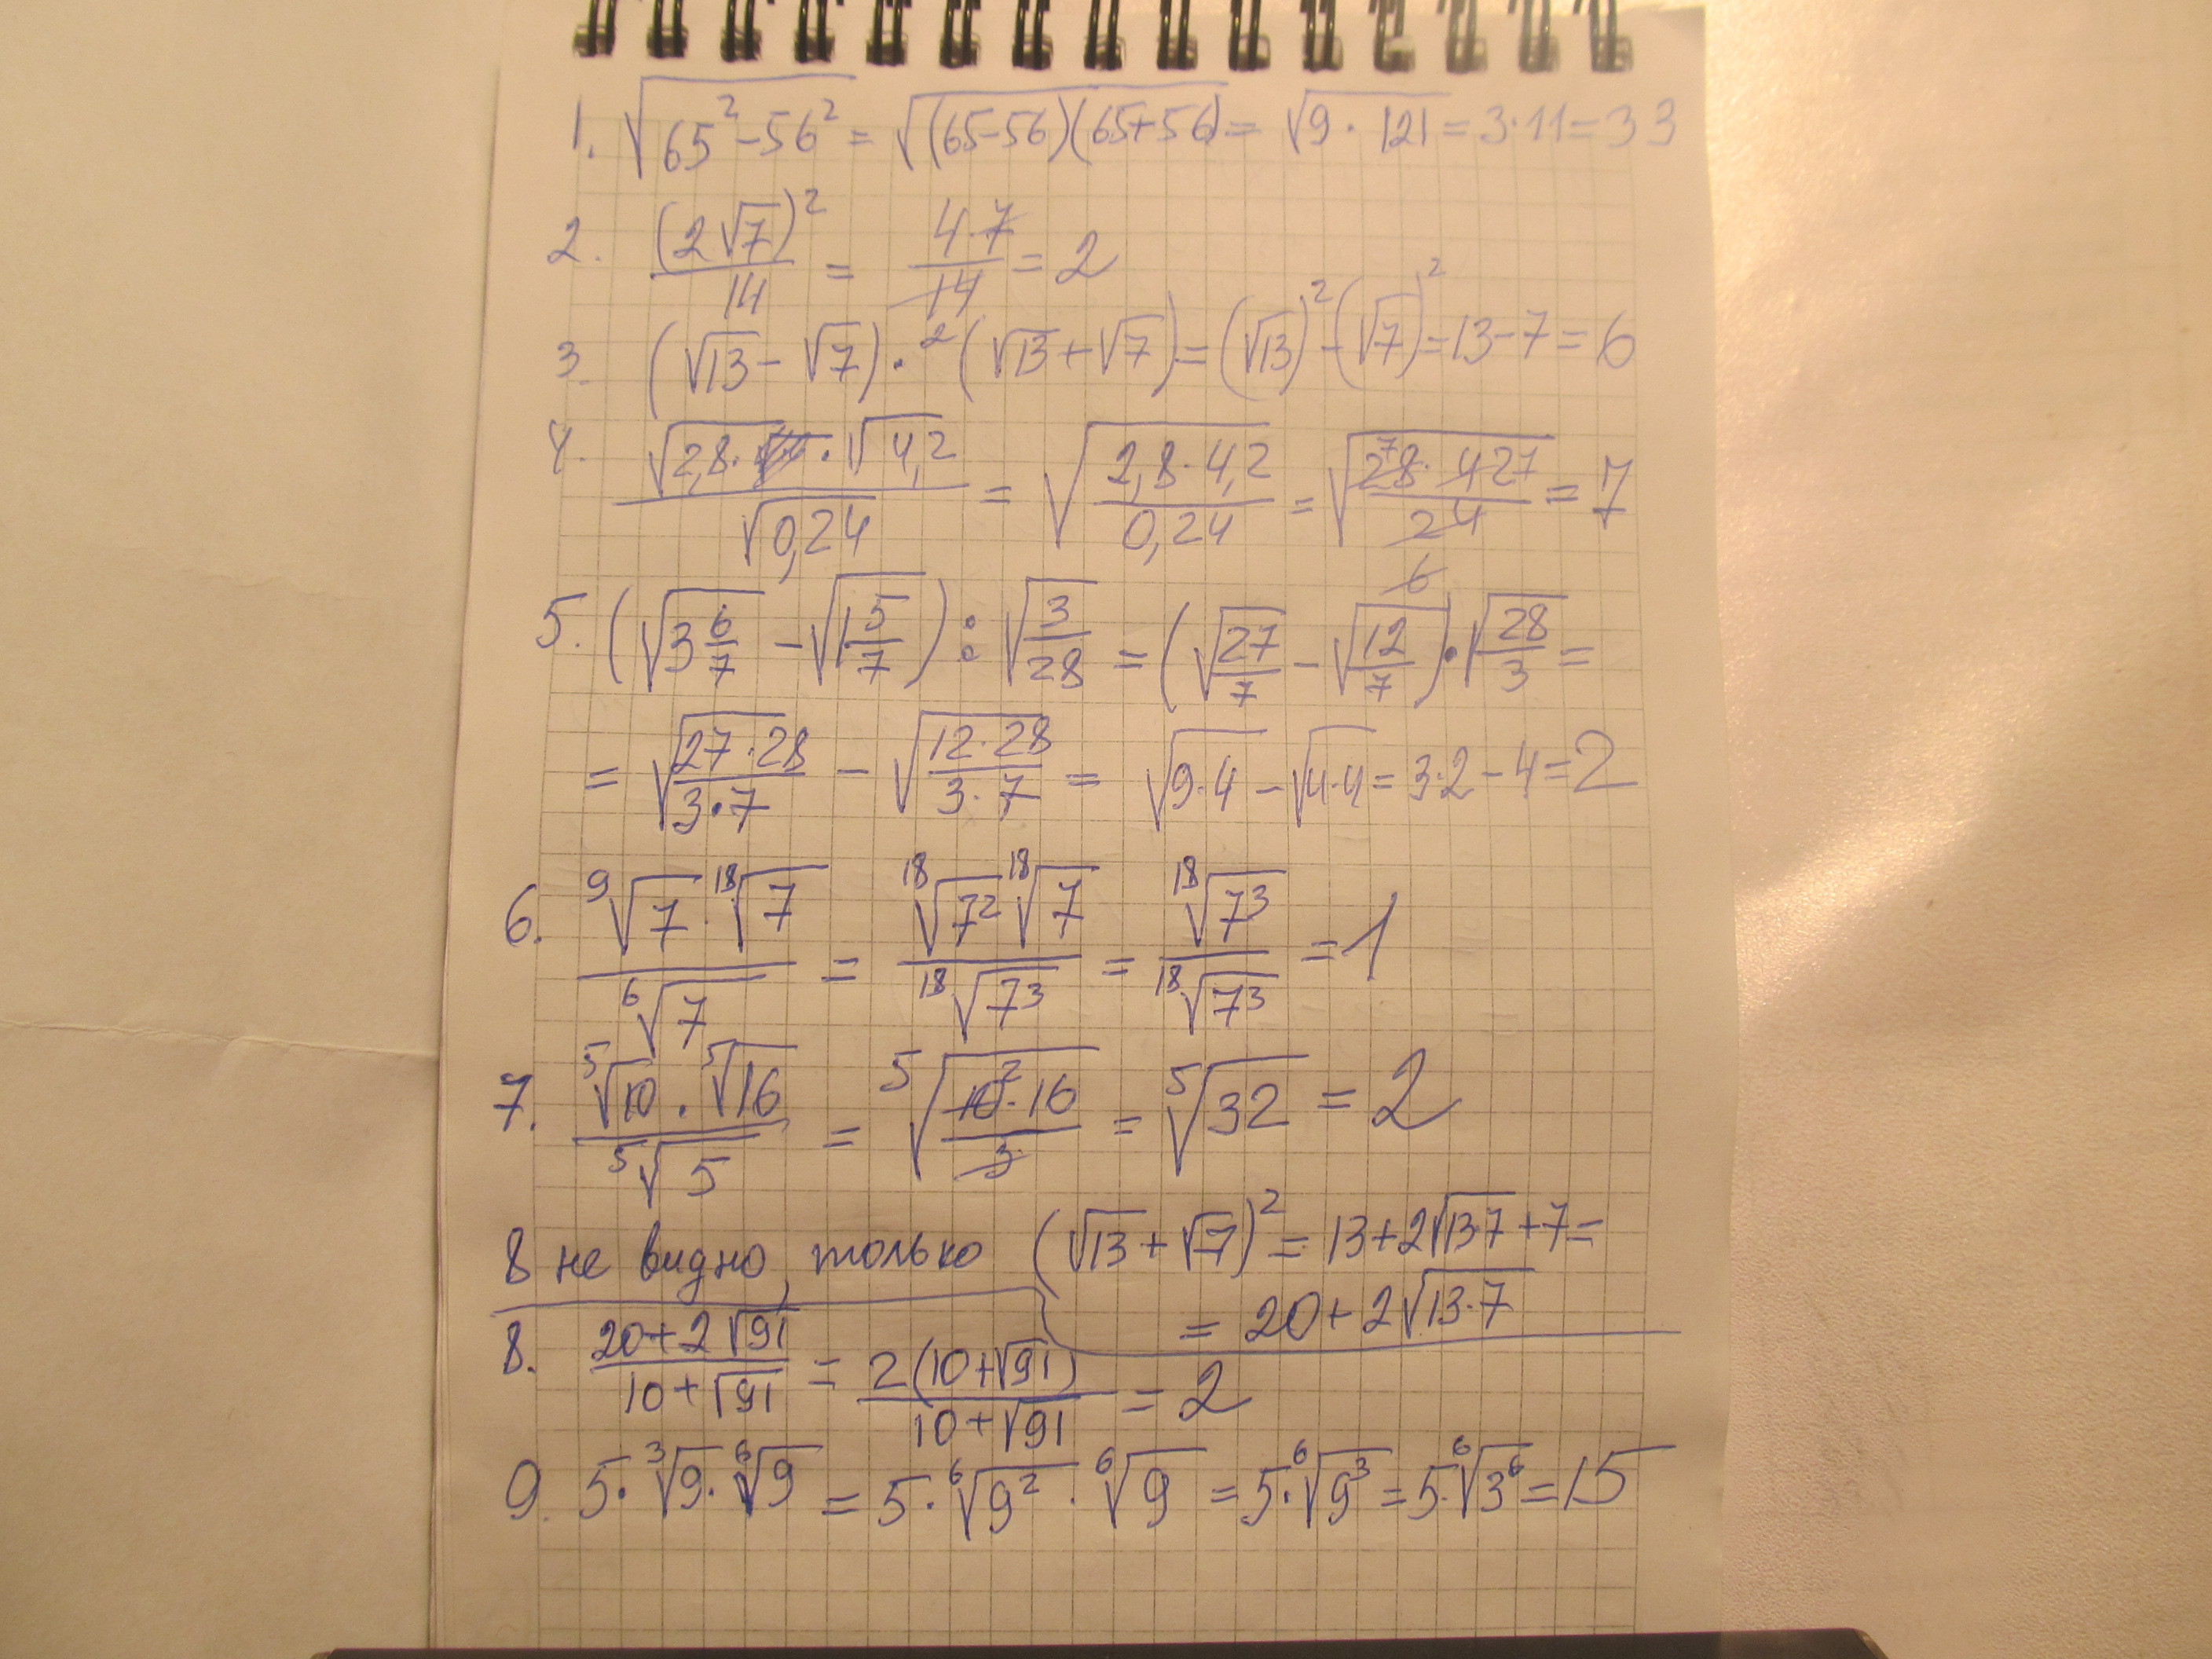 1. √(65² − 56²) = √((65−56)(65+56)) = √(9 · 121) = 3·11 = 33
2. (2√7)² / 14 = 4·7 / 14 = 2
3. (√13 − √7) · ² (√13 + √7) = (√13)² − (√7)² = 13 − 7 = 6
4. √2,8 · √4,2 / √0,24 = √(2,8 · 4,2 / 0,24) = √(28 7 · 42 7 / 24 6) = 7
5. (√(3 6/7) − √(1 5/7)) : √(3/28) = (√(27/7) − √(12/7)) · √(28/3) =
= √(27·28 / 3·7) − √(12·28 / 3·7) = √(9·4) − √(4·4) = 3·2 − 4 = 2
6. ⁹√7 · ¹⁸√7 / ⁶√7 = ¹⁸√7² ¹⁸√7 / ¹⁸√7³ = ¹⁸√7³ / ¹⁸√7³ = 1
7. ⁵√10 · ⁵√16 / ⁵√5 = ⁵√(10 2 · 16 / 5) = ⁵√32 = 2
8 не видно, только (√13 + √7)² = 13 + 2√(13·7) + 7 =
= 20 + 2√(13·7)
8. (20 + 2√91) / (10 + √91) = 2(10 + √91) / (10 + √91) = 2
9. 5 · ³√9 · ⁶√9 = 5 · ⁶√9² · ⁶√9 = 5 · ⁶√9³ = 5 · ⁶√3⁶ = 15